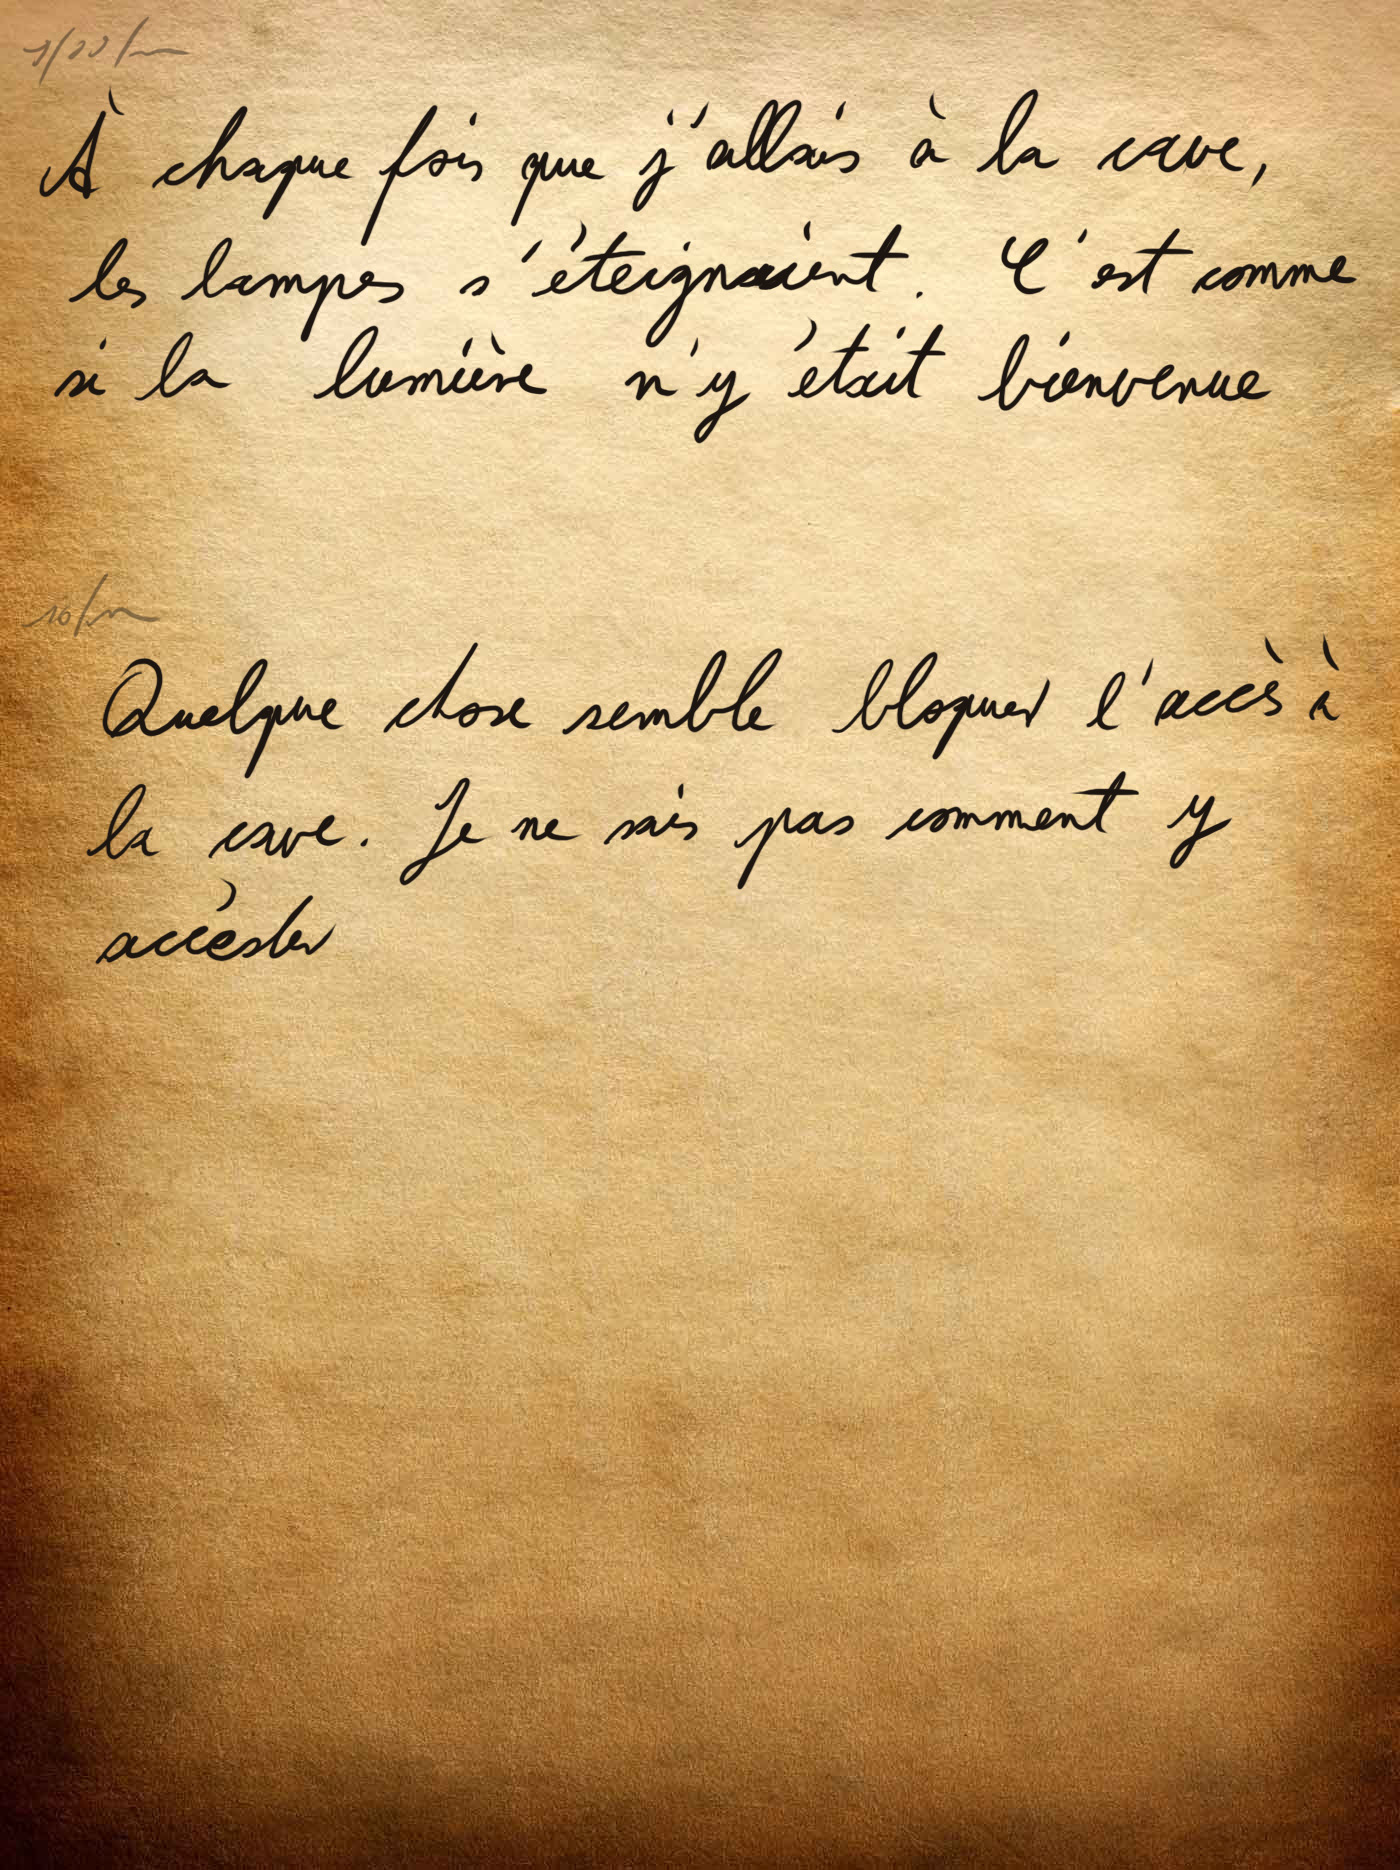 À chaque fois que j'allais à la cave,
les lampes s'éteignaient. C'est comme
si la lumière n'y était bienvenue
Quelque chose semble bloquer l'accès à
la cave. Je ne sais pas comment y